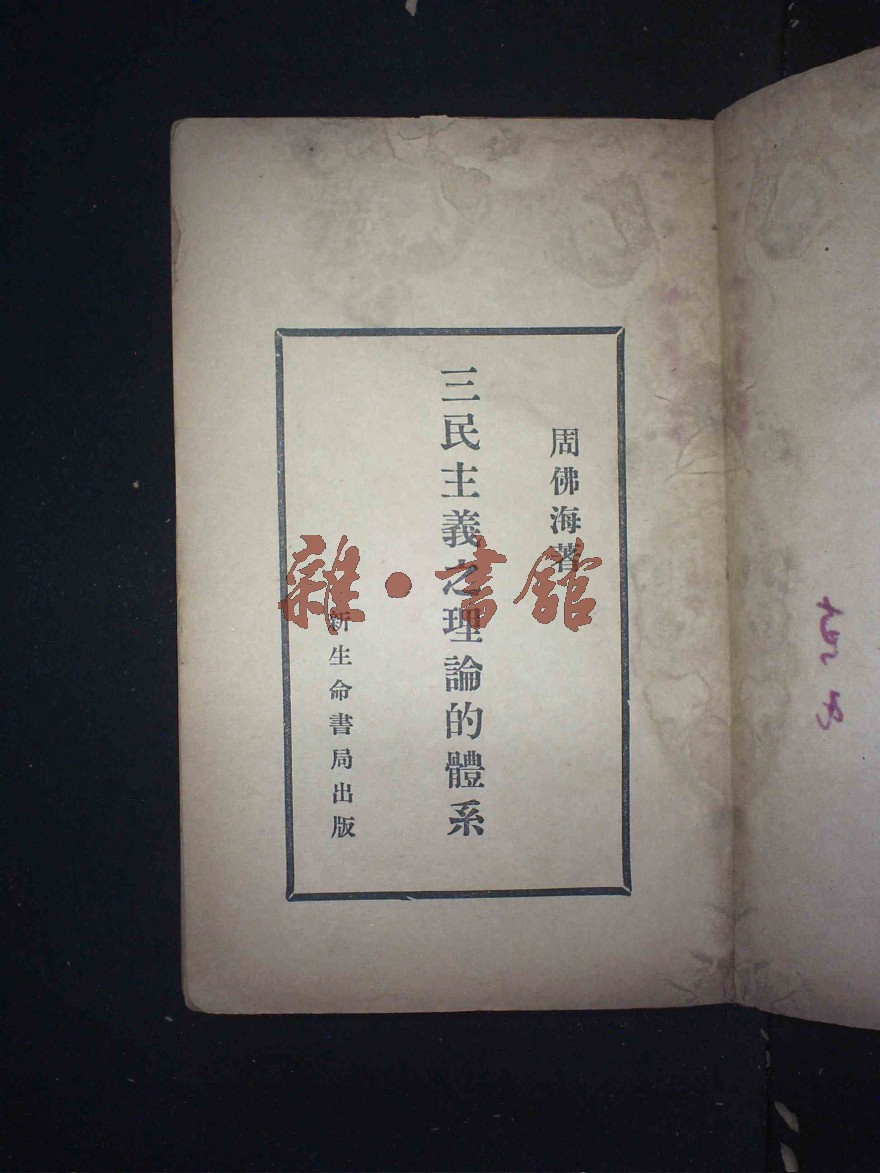 周佛海著
三民主義之理論的體系
新生命書局出版
雜·書館